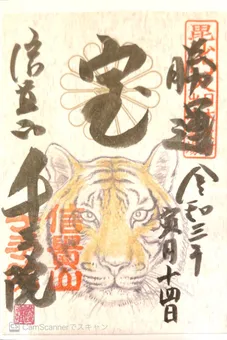 勝運
令和三年
寅月十四日
宝
信貴山
千手院
信貴山
CamScannerでスキャン